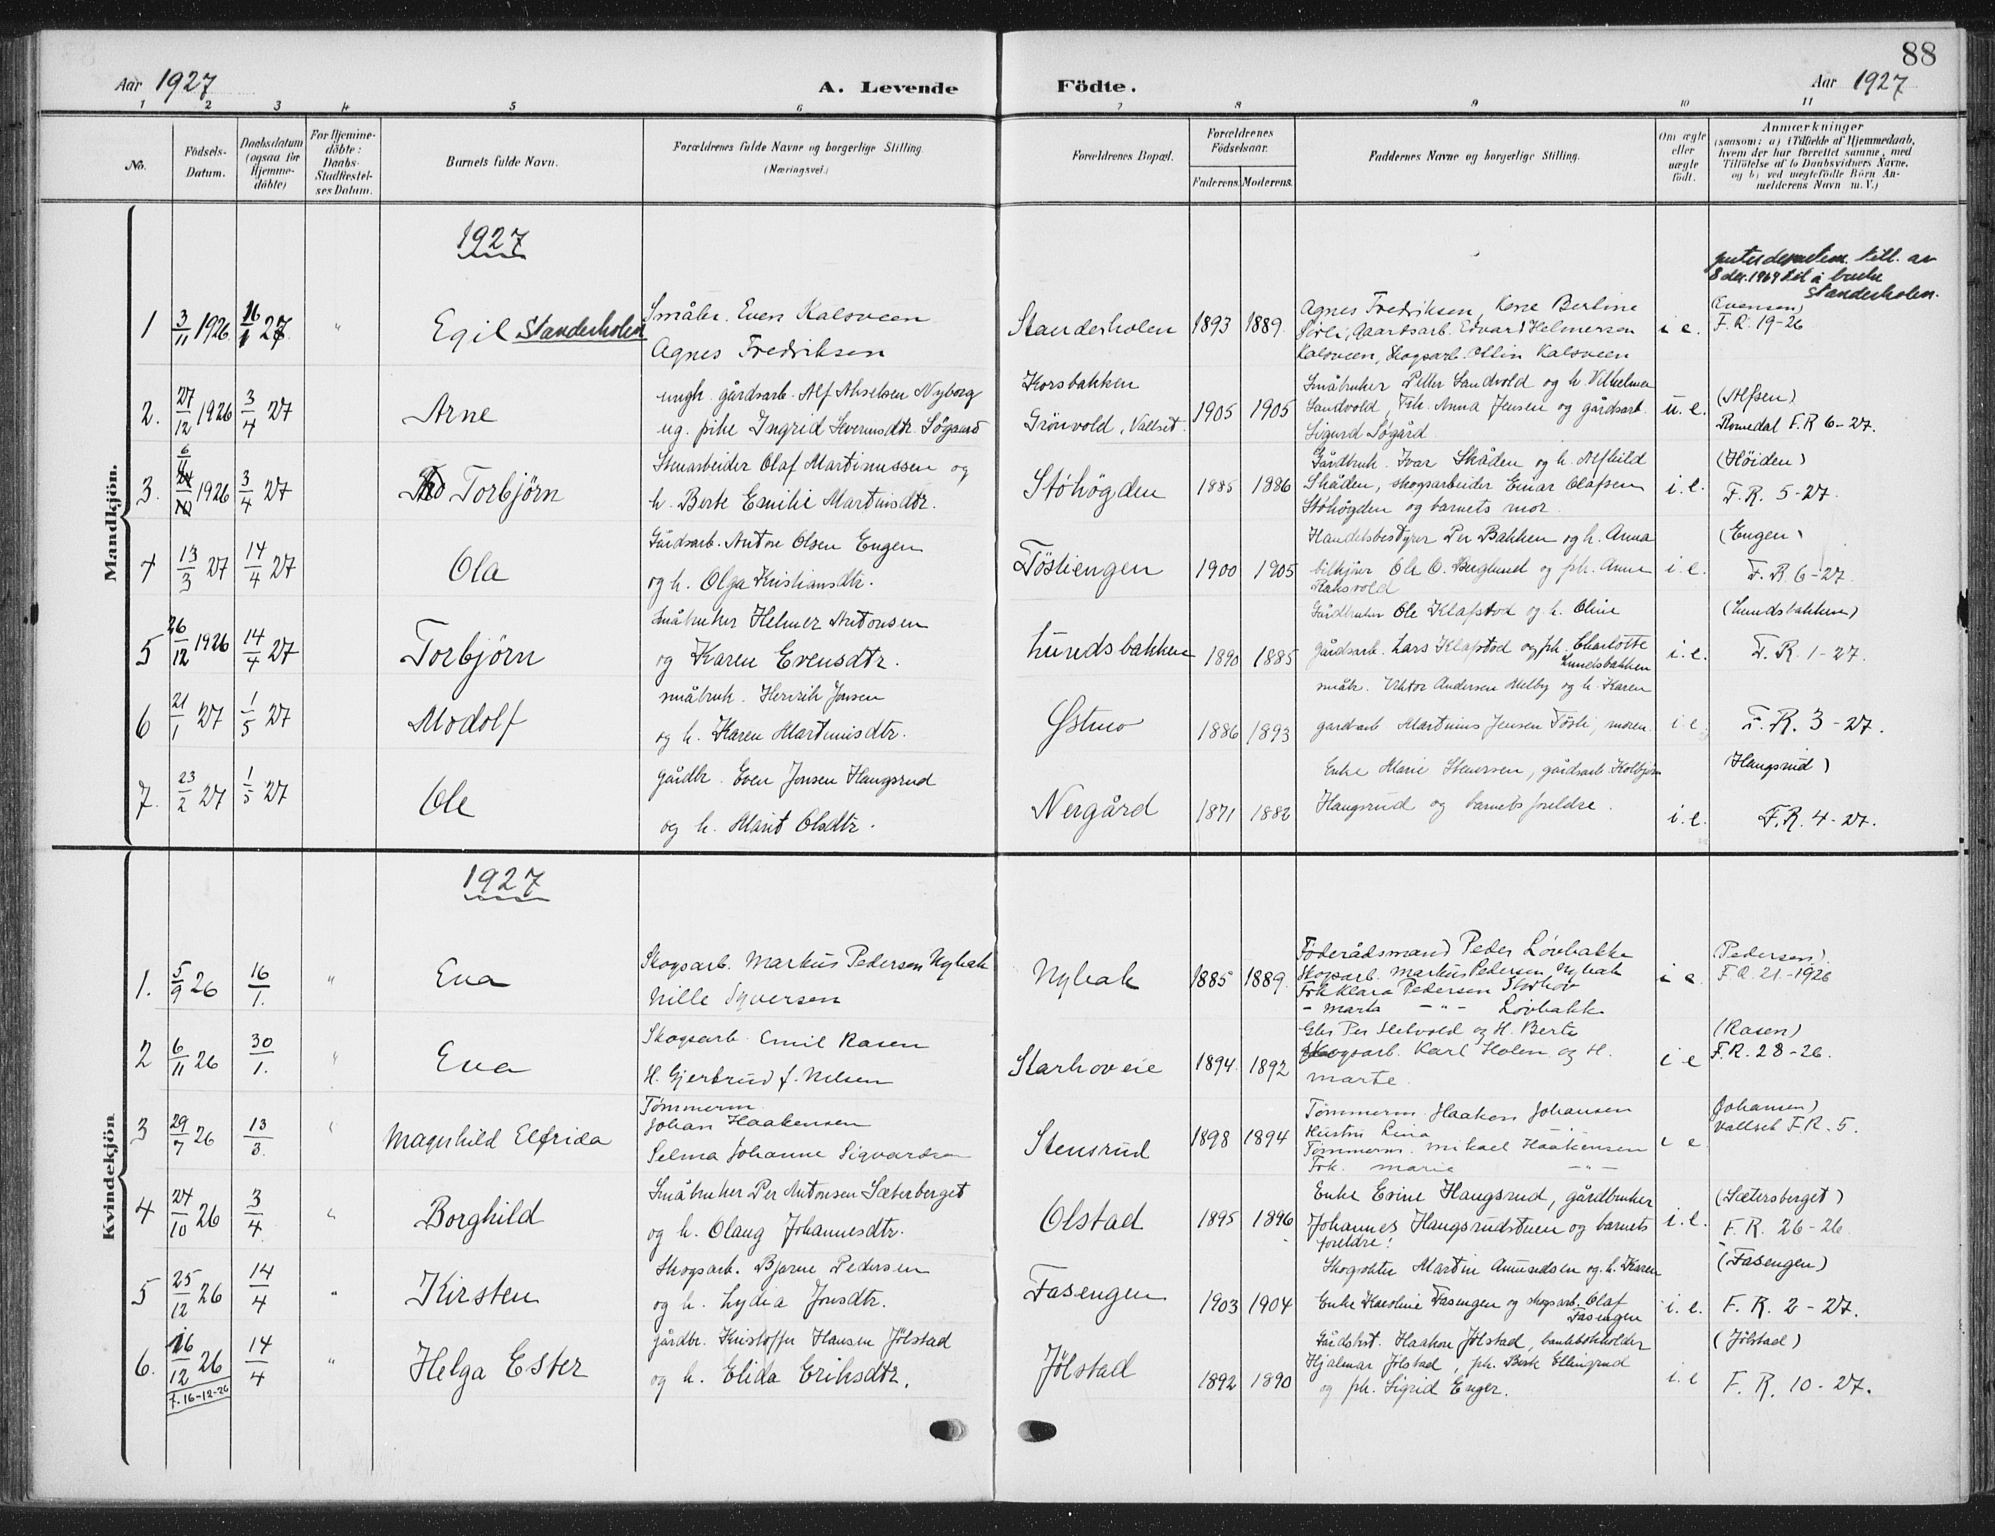 88
Aar 1927
A. Levende Födte.
Aar 1927
1 2 3 4 5 6 7 8 9 10 11
No.
Födsels-Datum.
Daabsdatum (ogsaa for Hjemme-döbte)
For Hjemme-döbte: Daabs-Stadfestel-ses Datum.
Barnets fulde Navn.
Forældrenes fulde Navne og borgerlige Stilling (Næringsvei.)
Forældrenes Bopæl.
Forældrenes Födselsaar.
Faderens. Moderens.
Faddernes Navne og borgerlige Stilling.
Om ægte eller uægte födt.
Anmærkninger
(saasom: a) i Tilfælde af Hjemmedaab,
hvem der har forrettet samme, med
Tilföielse af to Daabsvidners Navne,
og b) ved uegtefödte Börn An-
melderens Navn m. V.)
Mandkjön.
1927
till. av
8 des. 1969 til å bruke
Standerholen.
1 3/11 1926 16/1 27 " Egil Standerholen
Småbr. Even Kalsveen
Agnes Fredriksen
Standerholen 1893 1889.
Agnes Fredriksen, Kone Berline
Sörli, Gaardsarb. Edvard Helmersen
Kalsveen, Skogsarb. Ollin Kalsveen
i e.
(Evensen)
F. R. 19-26
2. 27/12 1926 3/4 27 Arne
ungk. gårdsarb. Alf Akselsen Nyborg
ug. pike Ingrid Severinsdtr. Søgaard
Korsbakken
Grönvold, Vallset. 1905 1905
Småbruker Petter Sandvold og h. Vilhelmine
Sandvold, Frk. Anna Jensen og gårdsarb.
Sigurd Søgård
u. e.
(Alfsen)
Romedal F. R 6-27.
3. 6/11 1926 3/4 27 Torbjörn
Stenarbeider Olaf Martinussen og
h. Berte Emilie Martinisdtr.
Stöhögden 1885 1886
Gårdbruk. Ivar Skåden og h. Alfhild
Skåden, skogsarbeider Einar Olafsen
Stöhögden og barnets mor.
i. e.
(Höiden)
F. R. 5-27.
4 13/3 27 14/4 27 Ola
Gårdsarb. Antore Olsen Engen
og h. Olga Kristiansdtr.
Töstiengen 1900 1905
Handelsbestyrer Per Bakken og h. Anna
bilkjører Ole O. Berglund og pk. Anne
i. e.
(Engen)
F. R. 6-27.
5 26/12 1926 14/4 27 Torbjörn
Småbruker Helmer Antonsen
og Karen Evensdtr.
Lundsbakken 1890 1885
Gårdbruker Ole Klafstad og h. Oline
gårdsarb. Lars Klafstad og pk. Charlotte
Lundsbakken
i. e.
(Lundsbakken)
F. R. 1-27.
6 21/1 27 1/5 27 Modolf
småbruk. Henrik Jensen
og h. Karen Martinisdtr.
Østmo 1886 1893
småbr. Viktor Andersen Melby og h. Karen
gardsarb Martinius Jensen Tösti, moren.
i. e.
F. R. 3-27.
7. 23/2 27 1/5 27 Ole
gårdbr. Even Jonsen Haugsrud
og h. Marit Olsdtr.
Nergård 1871 1882
Enke Marie Stenersen, gårdsarb. Kolbjørn
Haugsrud og barnets foreldre.
i. e.
(Haugsrud)
F. R. 4-27.
Kvindekjön
1927
1. 5/9 26 16/1. " Eva
Skogsarb. Markus Pedersen Nybak
Nille Syversen
Nybak 1885 1889.
Föderådsmand Peder Lövbakke
Skogsarb. Markus Pedersen Nybak
Frk Klara Pedersen
- Marta - " - Lövbakk
i e.
(Pedersen)
F. R. 21-1926
2 6/11 26 30/1. " Eva
Skogsarb. Emil Rasen
H. Gjertrud f. Nilsen
Starhoveie 1894. 1892
Gbr Per Helvold og H. Berte
Skogsarb. Karl Holen og H.
Marte.
i e
(Rasen)
F. R. 28-26.
3 29/7 26 13/3. " Magnhild Elfrida
Tømmerm.
Johan Haakensen
Selma Johanne Sigvardsen
Stensrud 1898 1894
Tømmerm. Haakon Johansen
Hustru Lina - " -
Tømmerm. Mikael Haakensen
Frk. Marie - " -
i e
Johansen)
Vallset F. R. 5.
4 24/10 26 3/4 " Borghild
Småbruker Per Antonsen Sæterberget
og h. Olaug Johannesdtr.
Olstad 1895 1896
Enke Evine Haugsrud, gårdbruker
Johannes Haugsrudstuen og barnets
foreldre.
i. e.
(Sætersberget)
F. R. 26-26
5 25/12 26 14/4 " Kirsten
Skogsarb. Bjarne Pedersen
og h. Lydia Jonsdtr.
Fasengen 1903 1904
Skogvokter Martin Amundsen og h. Karen
Enke Karoline Fasengen og skogsarb. Olaf
Fasengen
i. e.
(Fasengen)
F. R. 2-27.
6. 16/12 26 14/4 " Helga Ester
f. 16-12-26
gårdbr. Kristoffer Hansen Jølstad
og h. Elida Eriksdtr.
Jølstad 1892 1890
Gårdsbest. Haakon Jølstad, bankbokholder
Hjalmar Jølstad, pk. Berte Ellingrud
og pk. Sigrid Enger.
i. e
(Jølstad)
F. R. 10-27.